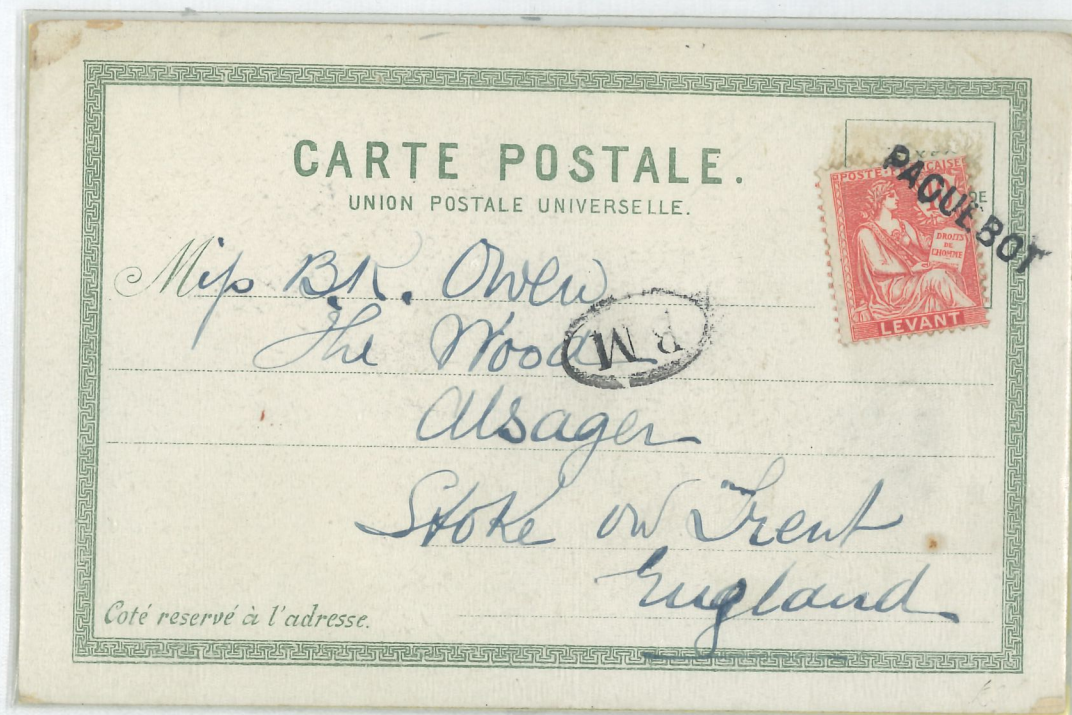 CARTE POSTALE.
UNION POSTALE UNIVERSELLE.
PAQUEBOT
POSTE CAISE
DE
DROITS
DE
L'HOMME
LEVANT
Miss B.K. Owen
The Wood
RM
Alsager
Stoke on Trent
England
Coté reservé à l'adresse.